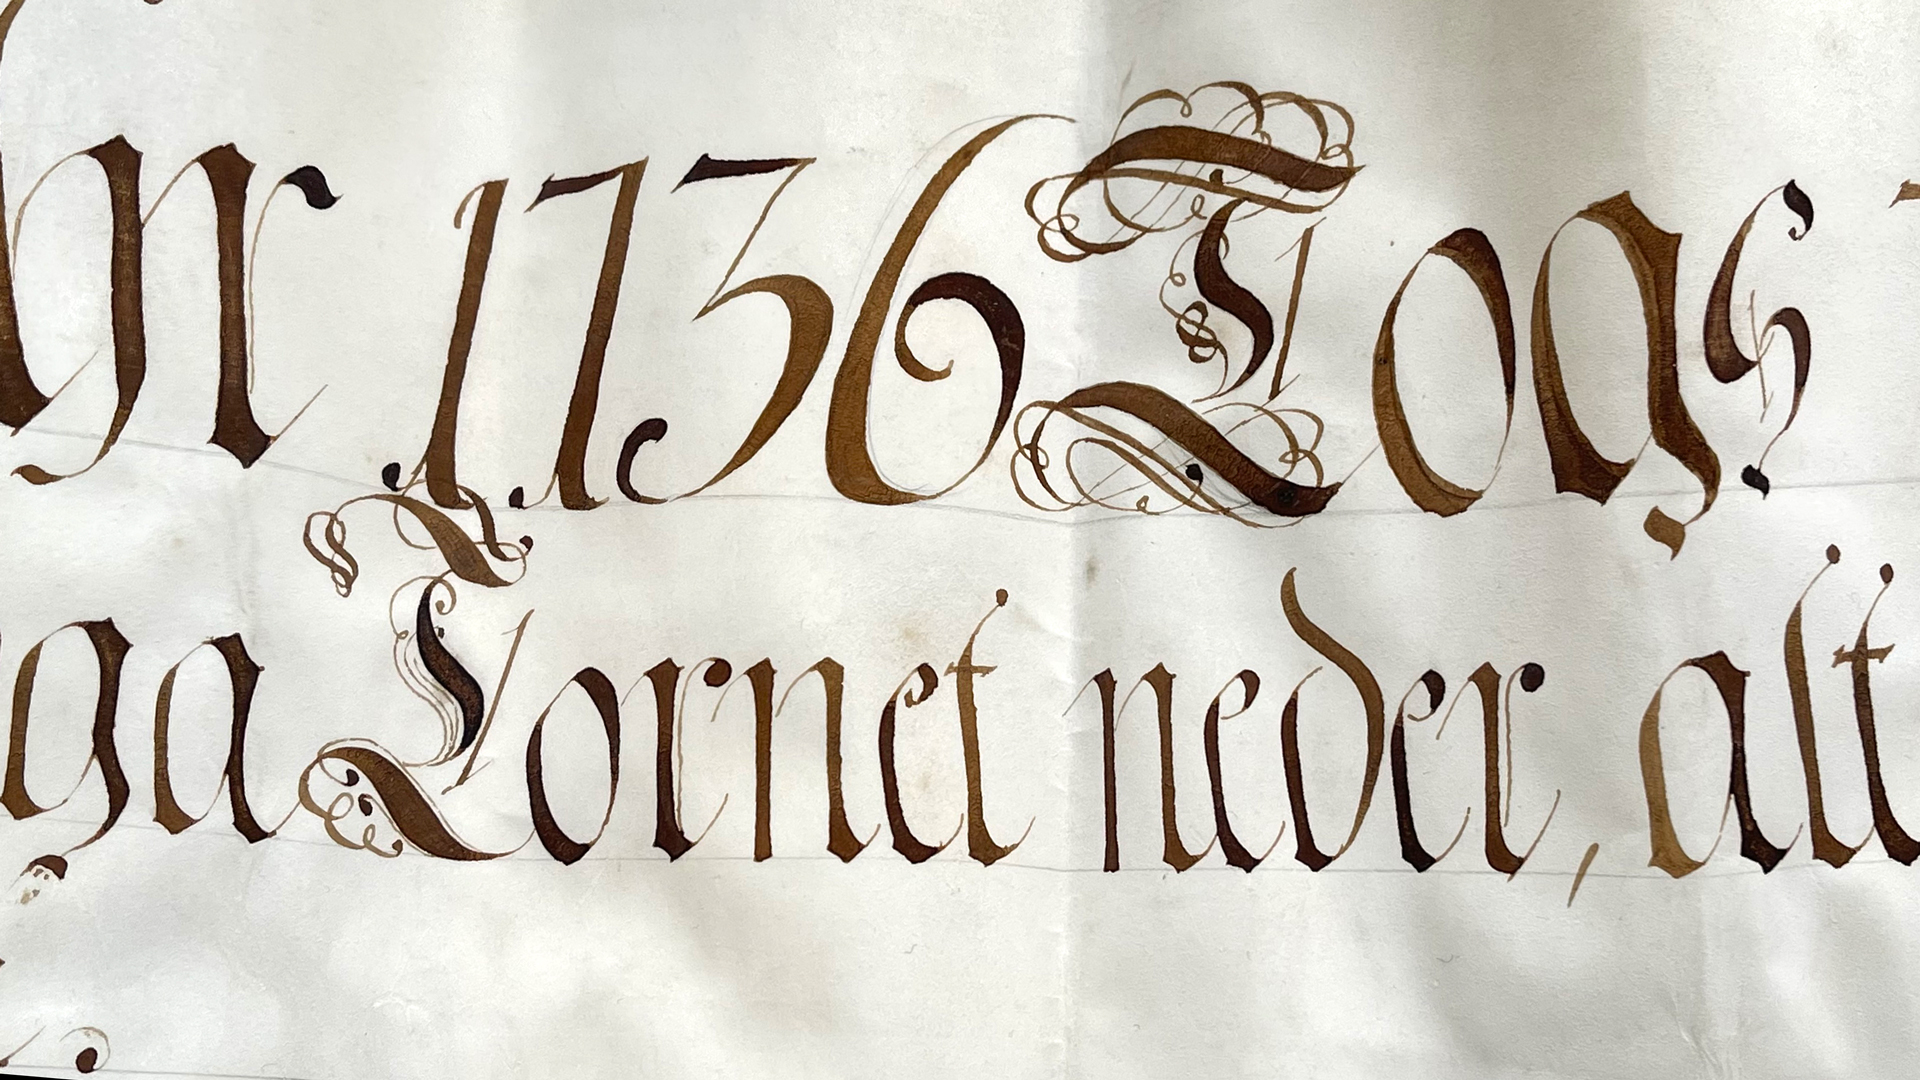 1736 Togs
ga Tornet neder, alt